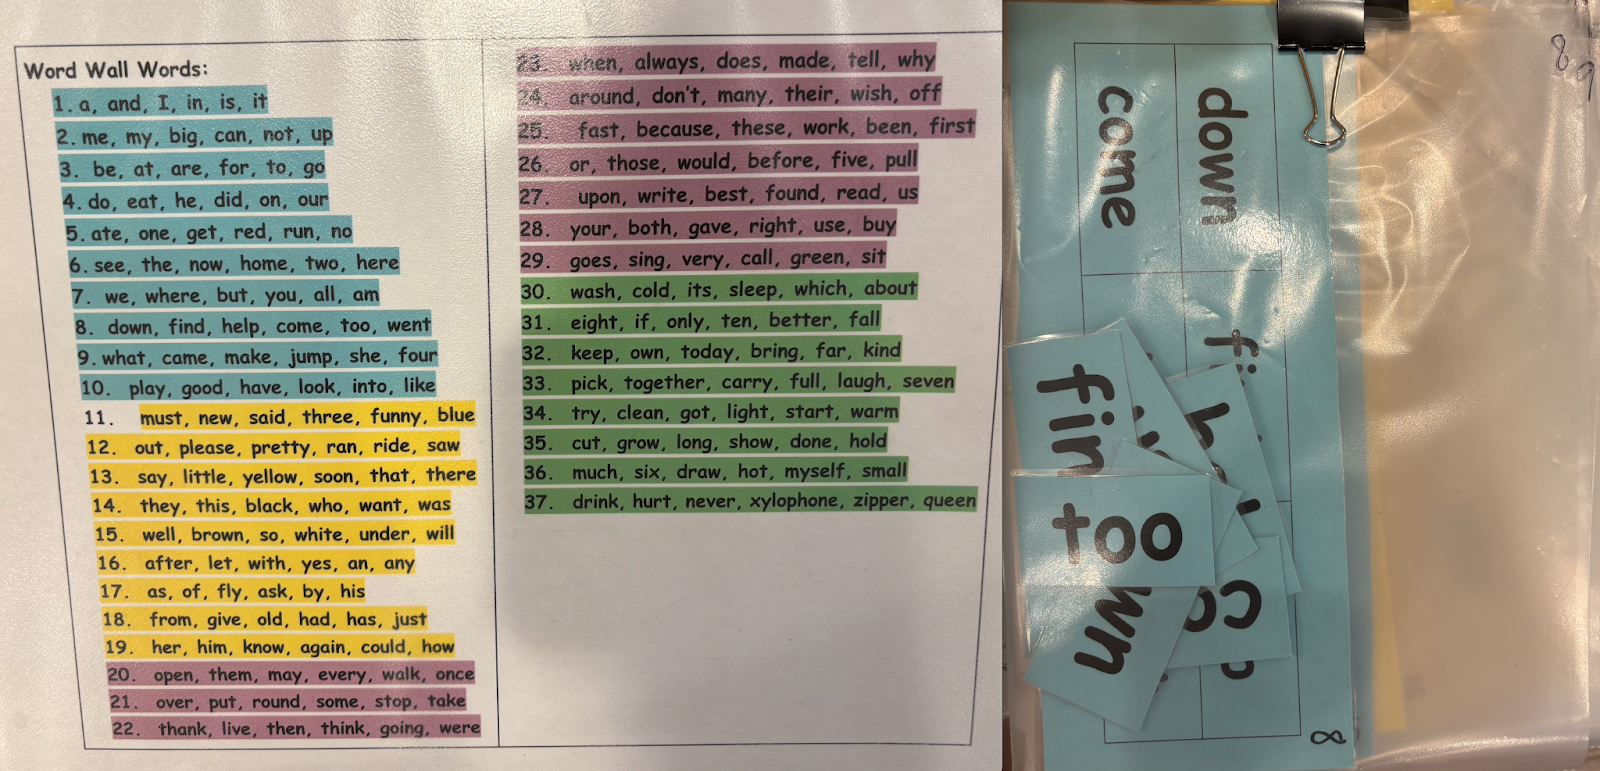 Word Wall Words:
1. a, and, I, in, is, it
2. me, my, big, can, not, up
3. be, at, are, for, to, go
4. do, eat, he, did, on, our
5. ate, one, get, red, run, no
6. see, the, now, home, two, here
7. we, where, but, you, all, am
8. down, find, help, come, too, went
9. what, came, make, jump, she, four
10. play, good, have, look, into, like
11. must, new, said, three, funny, blue
12. out, please, pretty, ran, ride, saw
13. say, little, yellow, soon, that, there
14. they, this, black, who, want, was
15. well, brown, so, white, under, will
16. after, let, with, yes, an, any
17. as, of, fly, ask, by, his
18. from, give, old, had, has, just
19. her, him, know, again, could, how
20. open, them, may, every, walk, once
21. over, put, round, some, stop, take
22. thank, live, then, think, going, were
23. when, always, does, made, tell, why
24. around, don't, many, their, wish, off
25. fast, because, these, work, been, first
26. or, those, would, before, five, pull
27. upon, write, best, found, read, us
28. your, both, gave, right, use, buy
29. goes, sing, very, call, green, sit
30. wash, cold, its, sleep, which, about
31. eight, if, only, ten, better, fall
32. keep, own, today, bring, far, kind
33. pick, together, carry, full, laugh, seven
34. try, clean, got, light, start, warm
35. cut, grow, long, show, done, hold
36. much, six, draw, hot, myself, small
37. drink, hurt, never, xylophone, zipper, queen
down
come
fin
too
wn
co
8
8
9